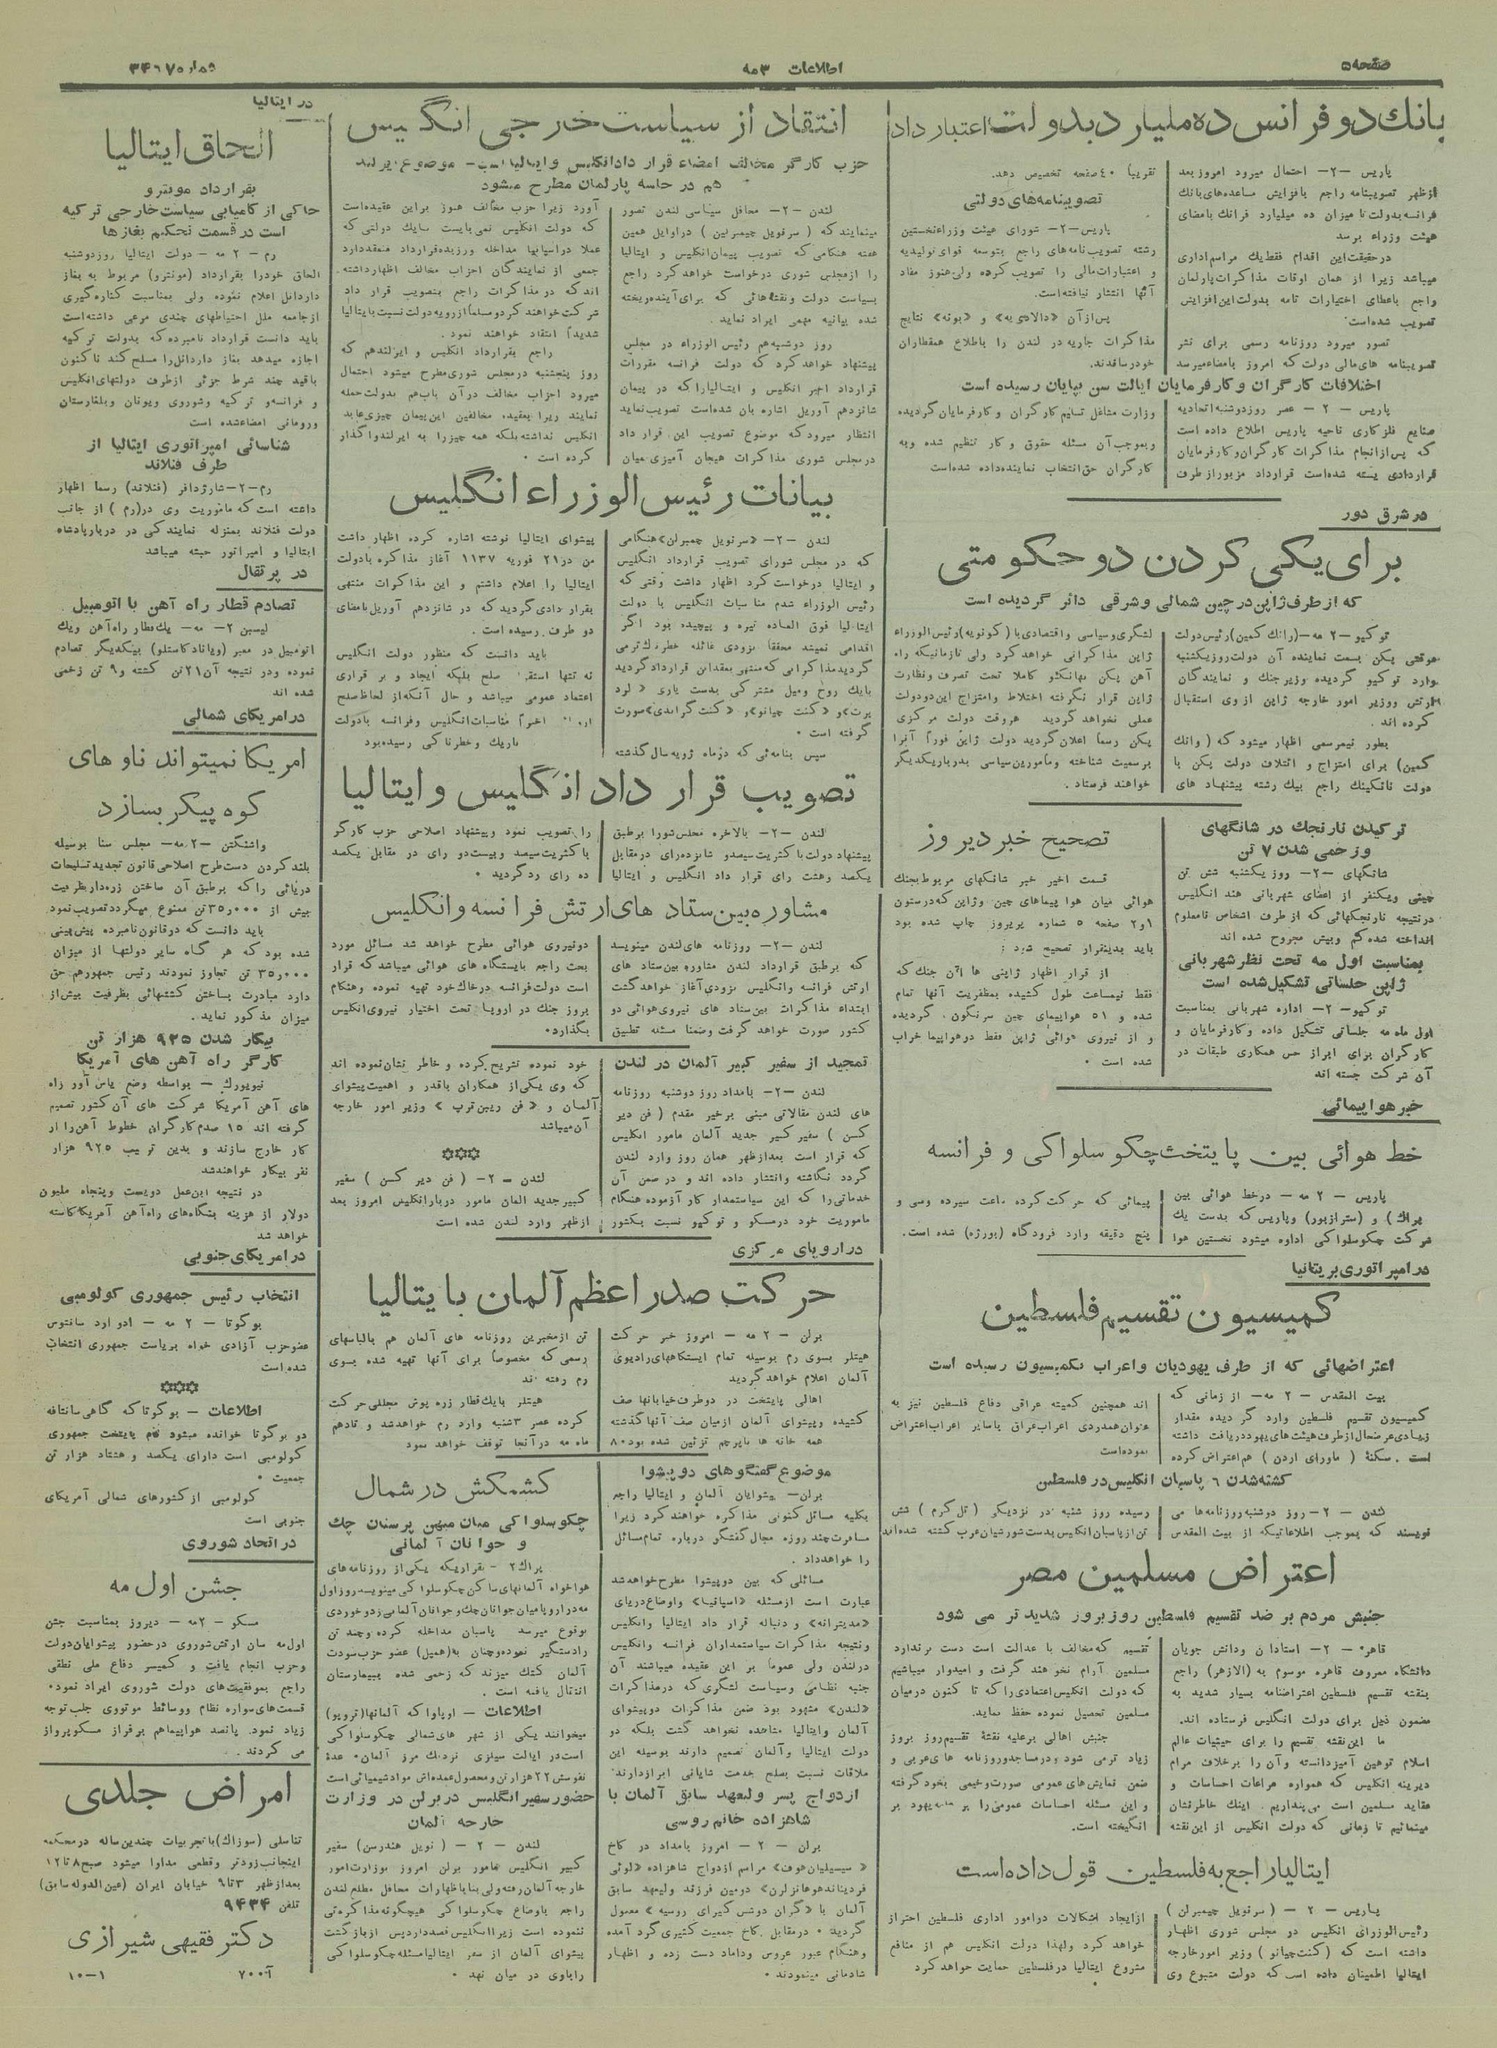 صفحه ۵
اطلاعات ۳ مه
شماره ۳۴۶۷
بانك دو فرانس ده مليارد بدولت اعتبار داد
پاریس -۲- احتمال میرود امروز بعد
ازظهر تصویبنامه راجع بافزایش مساعده‌های بانك
فرانسه بدولت تا میزان ده میلیارد فرانك بامضای
هیئت وزراء برسد
درحقیقت این اقدام فقط یك مراسم اداری
میباشد زیرا از همان اوقات مذاکرات پارلمان
راجع باعطای اختیارات تامه بدولت این افزایش
تصویب شده‌است
تصور میرود روزنامه رسمی برای نشر
تصویبنامه های مالی دولت که امروز بامضاء میرسد
تقریباً ۴۰ صفحه تخصیص دهد.
تصویبنامه‌های دولتی
پاریس-۲- شورای هیئت وزراء نخستین
رشته تصویب نامه‌های راجع بتوسعه قوای تولیدیه
و اعتبارات مالی را تصویب کرده ولی هنوز مفاد
آنها انتشار نیافته‌است.
پس‌از آن «دالادیه» و «بونه» نتایج
مذاکرات جاریه در لندن را باطلاع همقطاران
خود رساندند.
اختلافات کارگران و کارفرمایان ایالت سن بپایان رسیده است
پاریس - ۲ - عصر روز دوشنبه اتحادیه
صنایع فلزکاری ناحیه پاریس اطلاع داده است
که پس‌از انجام مذاکرات کارگران و کارفرمایان
قراردادی بسته شده‌است قرارداد مزبور از طرف
وزارت مشاغل تسلیم کارگران و کارفرمایان گردیده
و بموجب آن مسئله حقوق و کار تنظیم شده و به
کارگران حق انتخاب نماینده داده شده‌است
در شرق دور
برای یکی کردن دو حکومتی
که از طرف ژاپن در چین شمالی و شرقی دائر گردیده است
توکیو-۲ مه-(وانك کمین) رئیس دولت
موقتی پکن بسمت نماینده آن دولت روز یکشنبه
وارد توکیو گردیده وزیر جنك و نمایندگان
ارتش و وزیر امور خارجه ژاپن از وی استقبال
کرده اند.
بطور نیمرسمی اظهار میشود که (وانك
کمین) برای امتزاج و ائتلاف دولت پکن با
دولت نانکینك راجع بیك رشته پیشنهاد های
لشگری و سیاسی و اقتصادی با (کونویه) رئیس الوزراء
ژاپن مذاکراتی خواهد کرد ولی تا زمانیکه راه
آهن پکن بهانکئو کاملا تحت تصرف و نظارت
ژاپن قرار نگرفته اختلاط و امتزاج این دو دولت
عملی نخواهد گردید هروقت دولت مرکزی
پکن رسماً اعلان گردید دولت ژاپن فوراً آنرا
برسمیت شناخته و مأمورین سیاسی بدربار یکدیگر
خواهند فرستاد.
ترکیدن نارنجك در شانگهای
و زخمی شدن ۷ تن
شانگهای -۲- روز یکشنبه شش تن
چینی و یکنفر از اعضای شهربانی هند انگلیس
درنتیجه نارنجکهائی که از طرف اشخاص نامعلوم
انداخته شده کم و بیش مجروح شده اند
بمناسبت اول مه تحت نظر شهربانی
ژاپن جلساتی تشکیل شده است
توکیو- ۲- اداره شهربانی بمناسبت
اول ماه مه جلساتی تشکیل داده و کارفرمایان و
کارگران برای ابراز حس همکاری طبقات در
آن شرکت جسته اند
تصحیح خبر دیروز
قسمت اخیر خبر شانگهای مربوط بجنك
هوائی میان هوا پیماهای چین و ژاپن که در ستون
۱و۲ صفحه ۵ شماره پریروز چاپ شده بود
باید بدینقرار تصحیح شود:
از قرار اظهار ژاپنی ها آن جنك که
فقط نیمساعت طول کشیده بمظفریت آنها تمام
شده و ۵۱ هواپیمای چین سرنگون گردیده
و از نیروی هوائی ژاپن فقط دو هواپیما خراب
شده است.
خبر هواپیمائی
خط هوائی بین پایتخت چکوسلواکی و فرانسه
پاریس - ۲ مه - درخط هوائی بین
پراك) و (سترازبور) و پاریس که بدست یك
شرکت چکوسلواکی اداره میشود نخستین هوا
پیمائی که حرکت کرده ساعت سیزده و سی و
پنج دقیقه وارد فرودگاه (بورژه) شده است.
در امپراتوری بریتانیا
کمیسیون تقسیم فلسطین
اعتراضهائی که از طرف یهودیان و اعراب بکمیسیون رسیده است
بیت المقدس - ۲ مه- از زمانی که
کمیسیون تقسیم فلسطین وارد گردیده مقدار
زیادی عرضحال از طرف هیئت‌های یهود دریافت داشته
است. سکنهٔ (ماورای اردن) هم اعتراض کرده
اند همچنین کمیته عراقی دفاع فلسطین نیز به
عنوان همدردی اعراب عراق با سایر اعراب اعتراض
نموده است
کشته‌شدن ۶ پاسبان انگلیس در فلسطین
لندن - ۲- روز دوشنبه روزنامه‌ها می
نویسند که بموجب اطلاعاتیکه از بیت المقدس
رسیده روز شنبه در نزدیکی (تل کرم) شش
تن از پاسبان انگلیس بدست شورشیان عرب کشته شده‌اند
اعتراض مسلمین مصر
جنبش مردم بر ضد تقسیم فلسطین روز بروز شدید تر می شود
قاهره - ۲- استادان و دانش جویان
دانشگاه معروف قاهره موسوم به (الازهر) راجع
بنقشه تقسیم فلسطین اعتراضنامه بسیار شدید به
مضمون ذیل برای دولت انگلیس فرستاده اند.
ما این نقشه تقسیم را برای حیثیات عالم
اسلام توهین آمیز دانسته و آن را برخلاف مرام
دیرینه انگلیس که همواره مراعات احساسات و
عقاید مسلمین است می‌پنداریم. اینك خاطرنشان
مینمائیم تا زمانی که دولت انگلیس از این نقشه
تقسیم که مخالف با عدالت است دست برندارد
مسلمین آرام نخواهند گرفت و امیدوار میباشیم
که دولت انگلیس اعتمادی را که تا کنون درمیان
مسلمین تحصیل نموده حفظ نماید.
جنبش اهالی برعلیه نقشهٔ تقسیم روز بروز
زیاد ترمی شود و در مساجد و روزنامه های عربی و
ضمن نمایش‌های عمومی صورت وخیمی بخود گرفته
و این مسئله احساسات عمومی را بر ضد یهود بر
انگیخته است.
ایتالیا راجع به فلسطین قول داده است
پاریس - ۲ - (سرنویل چیمبرلن)
رئیس‌الوزرای انگلیس در مجلس شوری اظهار
داشته است که (کنت‌چیانو) وزیر امور خارجه
ایتالیا اطمینان داده است که دولت متبوع وی
از ایجاد اشکالات در امور اداری فلسطین احتراز
خواهد کرد ولهذا دولت انگلیس هم از منافع
مشروع ایتالیا در فلسطین حمایت خواهد کرد
انتقاد از سیاست خارجی انگلیس
حزب کارگر مخالف امضاء قرار داد انگلیس و ایتالیاست - موضوع ایرلند
هم در جلسه پارلمان مطرح میشود
لندن -۲- محافل سیاسی لندن تصور
مینمایند که (سرنویل چیمبرلین) دراوایل همین
هفته هنگامی که تصویب پیمان انگلیس و ایتالیا
را از مجلس شوری درخواست خواهد کرد راجع
بسیاست دولت و نقشه‌هائی که برای آینده ریخته
شده بیانیه مهمی ایراد نماید.
روز دوشنبه هم رئیس الوزراء در مجلس
پیشنهاد خواهد کرد که دولت فرانسه مقررات
قرارداد اخیر انگلیس و ایتالیا را که در پیمان
شانزدهم آوریل اشاره بان شده‌است تصویب نماید
انتظار میرود که موضوع تصویب این قرار داد
در مجلس شوری مذاکرات هیجان آمیزی میان
آورد زیرا حزب مخالف هنوز براین عقیده است
که دولت انگلیس نمی‌بایست با یك دولتی که
عملا در اسپانیا مداخله ورزیده قرارداد منعقد دارد
جمعی از نمایندگان احزاب مخالف اظهار داشته.
اند که در مذاکرات راجع بتصویب قرار داد
شرکت خواهند کرد و مسلما از رویه دولت نسبت بایتالیا
شدیداً انتقاد خواهند نمود.
راجع بقرارداد انگلیس و ایرلند هم که
روز پنجشنبه در مجلس شوری مطرح میشود احتمال
میرود احزاب مخالف در آن باب هم بدولت حمله
نمایند زیرا بعقیده مخالفین این پیمان چیزی عاید
انگلیس نداشته بلکه همه چیز را به ایرلند واگذار
کرده است.
بیانات رئیس الوزراء انگلیس
لندن -۲- «سرنویل چمبرلن» هنگامی
که در مجلس شورای تصویب قرارداد انگلیس
و ایتالیا درخواست کرد اظهار داشت وقتی که
رئیس الوزراء شدم مناسبات انگلیس با دولت
ایتالیا فوق العاده تیره و پیچیده بود اگر
اقدامی نمیشد محققا بزودی غائله خطرناکترمی
گردید مذاکراتی که منتهی بعقد این قرارداد گردید
بایك روح و میل مشترکی بدست یاری «لرد
پرت» و «کنت چیانو» و «کنت گراندی» صورت
گرفته است.
سپس بنامه‌ئی که درماه ژویه سال گذشته
پیشوای ایتالیا نوشته اشاره کرده اظهار داشت
من در ۲۱ فوریه ۱۹۳۷ آغاز مذاکره با دولت
ایتالیا را اعلام داشتم و این مذاکرات منتهی
بقرار دادی گردید که در شانزدهم آوریل بامضای
دو طرف رسیده است.
باید دانست که منظور دولت انگلیس
نه تنها استقرار صلح بلکه ایجاد و بر قراری
اعتماد عمومی میباشد و حال آنکه از لحاظ صلح
اخیراً مناسبات انگلیس و فرانسه با دولت
باریك و خطرناکی رسیده بود
تصویب قرار داد انگلیس و ایتالیا
لندن -۲- بالاخره مجلس شورا برطبق
پیشنهاد دولت با کثریت سیصد و شانزده رای در مقابل
یکصد و هشت رای قرار داد انگلیس و ایتالیا
را تصویب نمود و پیشنهاد اصلاحی حزب کارگر
با کثریت سیصد و بیست دو رای در مقابل یکصد
ده رای رد گردید.
مشاوره بین ستاد های ارتش فرانسه و انگلیس
لندن -۲- روزنامه های لندن مینویسد
که برطبق قرارداد لندن مشاوره بین ستاد های
ارتش فرانسه و انگلیس بزودی آغاز خواهد گشت
ابتداء مذاکرات بین ستاد های نیروی هوائی دو
کشور صورت خواهد گرفت و ضمنا مسئله تطبیق
دو نیروی هوائی مطرح خواهد شد مسائل مورد
بحث راجع بایستگاه های هوائی میباشد که قرار
است دولت فرانسه درخاك خود تهیه نموده و هنگام
بروز جنك در اروپا تحت اختیار نیروی انگلیس
بگذارد.
تمجید از سفیر کبیر آلمان در لندن
لندن -۲- بامداد روز دوشنبه روزنامه
های لندن مقالاتی مبنی برخیر مقدم (فن دیر
کسن) سفیر کبیر جدید آلمان مامور انگلیس
که قرار است بعدازظهر همان روز وارد لندن
گردد نگاشته و انتشار داده اند و در ضمن آن
خدماتی را که این سیاستمدار کار آزموده هنگام
ماموریت خود در مسکو و توکیو نسبت بکشور
خود نموده تشریح کرده و خاطر نشان نموده اند
که وی یکی از همکاران باقدر و اهمیت پیشوای
آلمان و «فن ریبن‌ترپ» وزیر امور خارجه
آن میباشد
***
لندن - ۲- (فن دیر کسن) سفیر
کبیر جدید المان مامور دربار انگلیس امروز بعد
ازظهر وارد لندن شده است
در اروپای مرکزی
حرکت صدر اعظم آلمان بایتالیا
برلن - ۲ مه - امروز خبر حرکت
هیتلر بسوی رم بوسیله تمام ایستگاههای رادیوی
آلمان اعلام خواهد گردید
اهالی پایتخت در دوطرف خیابانها صف
کشیده و پیشوای آلمان ازمیان صف آنها گذشته
همه خانه ها باپرچم تزئین شده بود. ۸۰
تن از مخبرین روزنامه های آلمان هم بالباسهای
رسمی که مخصوصاً برای آنها تهیه شده بسوی
رم رفته اند
هیتلر بایك قطار زره پوش مجللی حرکت
کرده عصر ۳شنبه وارد رم خواهد شد و تا دهم
ماه مه در آنجا توقف خواهد نمود
موضوع گفتگوهای دو پیشوا
برلن- پیشوایان آلمان و ایتالیا راجع
بکلیه مسائل کنونی مذاکره خواهند کرد زیرا
مسافرت چند روزه مجال گفتگو درباره تمام مسائل
را خواهد داد.
مسائلی که بین دو پیشوا مطرح خواهد شد
عبارت است از مسئله «اسپانیا» و اوضاع دریای
«مدیترانه» و دنباله قرار داد ایتالیا و انگلیس
و نتیجه مذاکرات سیاستمداران فرانسه و انگلیس
درلندن ولی عموماً بر این عقیده میباشند آن
جنبه نظامی و سیاست لشگری که در مذاکرات
«لندن» مشهود بود ضمن مذاکرات دو پیشوای
آلمان و ایتالیا مشاهده نخواهد گشت بلکه دو
دولت ایتالیا و آلمان تصمیم دارند بوسیله این
ملاقات نسبت بصلح خدمت شایانی ابراز دارند.
ازدواج پسر ولیعهد سابق آلمان با
شاهزاده خانم روسی
برلن - ۲ - امروز بامداد در کاخ
«سیسیلیان هوف» مراسم ازدواج شاهزاده «لوئی
فردیناندهوهانزلرن» دومین فرزند ولیعهد سابق
آلمان با «گران دوشس کیرای روسیه» معمول
گردید. در مقابل کاخ جمعیت کثیری گرد آمده
و هنگام عبور عروس و داماد دست زده و اظهار
شادمانی مینمودند.
کشمکش در شمال
چکوسلواکی میان میهن پرستان چك
و جوانان آلمانی
پراك ۲ - بقراریکه یکی از روزنامه‌های
هواخواه آلمانهای ساکن چکوسلواکی مینویسد روز اول
مه در اروپا میان جوانان چك و جوانان آلمانی زد و خوردی
بوقوع میرسد پاسبان مداخله کرده و چند تن
را دستگیر نموده و چنان به (همیل) عضو حزب سودت
آلمان کتك میزند که زخمی شده ببیمارستان
انتقال یافته است.
اطلاعات - اوپاوا که آلمانها (تروپو)
میخوانند یکی از شهر های شمالی چکوسلواکی
است در ایالت سیلزی نزدیك مرز آلمان. عدهٔ
نفوسش ۲۲ هزار تن و محصول عمده‌اش مواد شیمیائی است
حضور سفیر انگلیس در برلن در وزارت
خارجه المان
لندن - ۲ - (نویل هندرسن) سفیر
کبیر انگلیس مامور برلن امروز بوزارت امور
خارجه آلمان رفته ولی بنا باظهارات محافل مطلع لندن
راجع باوضاع چکوسلواکی هیچگونه مذاکره‌ئی
ننموده است زیرا انگلیس قصد دارد پس از بازگشت
پیشوای آلمان از سفر ایتالیا مسئله چکوسلواکی
را باوی در میان نهد.
در ایتالیا
الحاق ایتالیا
بقرارداد مونترو
حاکی از کامیابی سیاست خارجی ترکیه
است در قسمت تحکیم بغازها
رم - ۲ مه - دولت ایتالیا روز دوشنبه
الحاق خود را بقرارداد (مونترو) مربوط به بغاز
داردانل اعلام نموده ولی بمناسبت کناره گیری
از جامعه ملل احتیاطهای چندی مرعی داشته‌است
باید دانست قرارداد نامبرده که بدولت ترکیه
اجازه میدهد بغاز داردانل را مسلح کند تا کنون
باقید چند شرط جزئی از طرف دولتهای انگلیس
و فرانسه و ترکیه و شوروی و یونان و بلغارستان
و رومانی امضاء شده است
شناسائی امپراتوری ایتالیا از
طرف فنلاند
رم-۲-شارژدافر (فنلاند) رسما اظهار
داشته است که ماموریت وی در (رم) از جانب
دولت فنلاند بمنزله نمایندگی در دربار پادشاه
ایتالیا و امپراتور حبشه میباشد
در پرتقال
تصادم قطار راه آهن با اتومبیل
لیسبن ۲- مه- یك قطار راه آهن و یك
اتومبیل در معبر (ویاناد کاستلو) بیکدیگر تصادم
نموده و در نتیجه آن ۲۱ تن کشته و ۹ تن زخمی
شده اند
در امریکای شمالی
امریکا نمیتواند ناو های
کوه پیکر بسازد
واشنگتن -۲ مه- مجلس سنا بوسیله
بلند کردن دست طرح اصلاحی قانون تجدید تسلیحات
دریائی را که برطبق آن ساختن زره دار بظرفیت
بیش از ۳۵٫۰۰۰ تن ممنوع میگردد تصویب نمود
باید دانست که در قانون نامبرده پیش بینی
شده بود که هر گاه سایر دولتها از میزان
۳۵٫۰۰۰ تن تجاوز نمودند رئیس جمهور هم حق
دارد مبادرت بساختن کشتیهائی بظرفیت بیش از
میزان مذکور نماید.
بیکار شدن ۹۲۵ هزار تن
کارگر راه آهن های آمریکا
نیویورك - بواسطه وضع یاس آور راه
های آهن آمریکا شرکت های آن کشور تصمیم
گرفته اند ۱۵ صدم کارگران خطوط آهن را از
کار خارج سازند و بدین ترتیب ۹۲۵ هزار
نفر بیکار خواهند شد
در نتیجه این عمل دویست و پنجاه ملیون
دولار از هزینه بنگاه‌های راه آهن آمریکا کاسته
خواهد شد
در امریکای جنوبی
انتخاب رئیس جمهوری کولومبی
بوگوتا - ۲ مه - ادوارد سانتوس
عضو حزب آزادی خواه بریاست جمهوری انتخاب
شده است
***
اطلاعات - بوگوتا که گاهی سانتافه
دو بوگوتا خوانده میشود نام پایتخت جمهوری
کولومبی است دارای یکصد و هشتاد هزار تن
جمعیت.
کولومبی از کشورهای شمالی آمریکای
جنوبی است
در اتحاد شوروی
جشن اول مه
مسکو - ۲مه - دیروز بمناسبت جشن
اول مه سان ارتش شوروی درحضور پیشوایان دولت
و حزب انجام یافت و کمیسر دفاع ملی نطقی
راجع بموفقیت‌های دولت شوروی ایراد نمود.
قسمت‌های سواره نظام و وسائط موتوری جلب توجه
زیاد نمود. پانصد هواپیما هم برفراز مسکو پرواز
می کردند.
امراض جلدی
تناسلی (سوزاك) باتجربیات چندین ساله درمحکمه
اینجانب زودتر و قطعی مداوا میشود صبح ۸ تا ۱۲
بعد از ظهر ۳ تا ۹ خیابان ایران (عین الدوله سابق)
تلفن ۹۴۳۴
دکتر فقیهی شیرازی
آ۷۰۰ ۱-۱۰